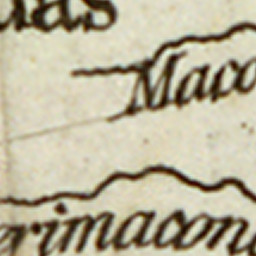 das
Maco
erimacon